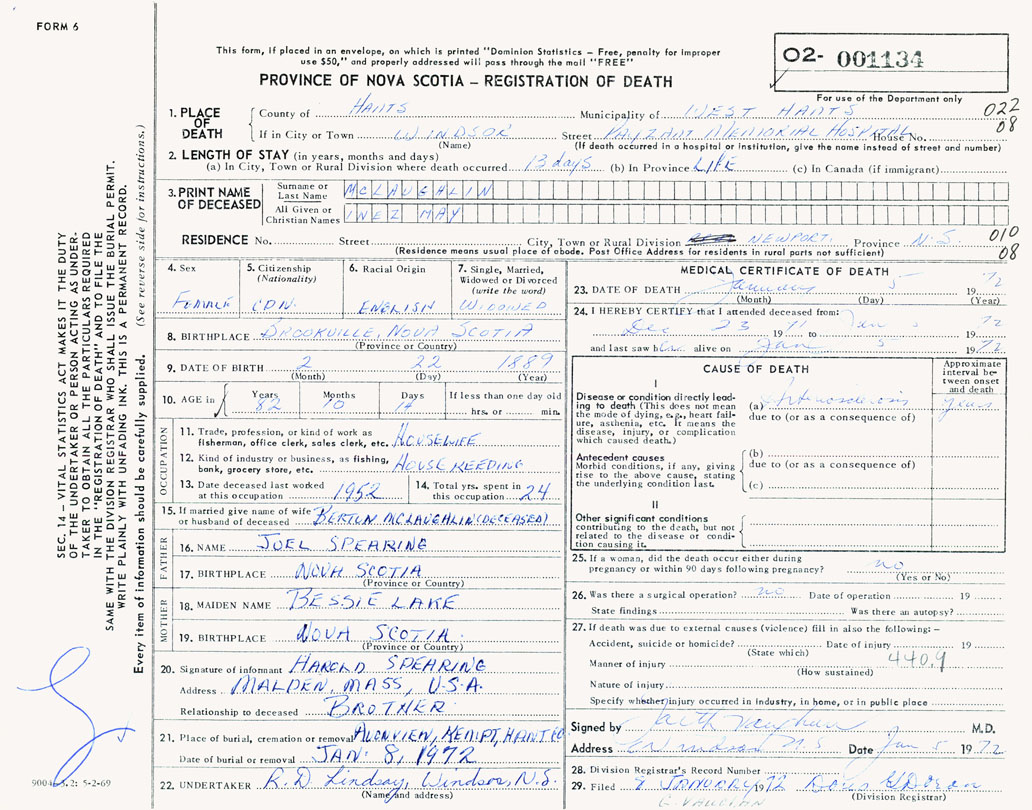 FORM 6
This form, if placed in an envelope, on which is printed "Dominion Statistics – Free, penalty for improper
use $50," and properly addressed will pass through the mail "FREE"
PROVINCE OF NOVA SCOTIA – REGISTRATION OF DEATH
02- 001134
For use of the Department only
022
08
1. PLACE OF DEATH
County of HANTS Municipality of WEST HANTS
If in City or Town WINDSOR Street PAYZANT MEMORIAL HOSPITAL House No.
(Name) (If death occurred in a hospital or institution, give the name instead of street and number)
2. LENGTH OF STAY (in years, months and days)
(a) In City, Town or Rural Division where death occurred 13 days (b) In Province LIFE (c) In Canada (if immigrant)
3. PRINT NAME OF DECEASED
Surname or Last Name MCLAUGHLIN
All Given or Christian Names INEZ MAY
RESIDENCE No. Street City, Town or Rural Division NEWPORT. Province N.S. 010
(Residence means usual place of abode. Post Office Address for residents in rural parts not sufficient) 08
4. Sex FEMALE
5. Citizenship (Nationality) CDN.
6. Racial Origin ENGLISH
7. Single, Married, Widowed or Divorced (write the word) WIDOWED
8. BIRTHPLACE BROOKVILLE, NOVA SCOTIA
(Province or Country)
9. DATE OF BIRTH 2 22 1889
(Month) (Day) (Year)
10. AGE in Years 82 Months 10 Days 14 If less than one day old hrs. or min.
OCCUPATION
11. Trade, profession, or kind of work as fisherman, office clerk, sales clerk, etc. HOUSEWIFE
12. Kind of industry or business, as fishing, bank, grocery store, etc. HOUSE KEEDING
13. Date deceased last worked at this occupation 1952
14. Total yrs. spent in this occupation 24
15. If married give name of wife or husband of deceased BERTON MCLAUGHLIN (DECEASED)
FATHER
16. NAME JOEL SPEARING
17. BIRTHPLACE NOVA SCOTIA
(Province or Country)
MOTHER
18. MAIDEN NAME BESSIE LAKE
19. BIRTHPLACE NOVA SCOTIA.
(Province or Country)
20. Signature of informant HAROLD SPEARING
Address MALDEN, MASS, U.S.A.
Relationship to deceased BROTHER
21. Place of burial, cremation or removal KEMPT, HANTS
Date of burial or removal JAN. 8, 1972
22. UNDERTAKER R.D Lindsay, Windsor, N.S.
(Name and address)
MEDICAL CERTIFICATE OF DEATH
23. DATE OF DEATH January 5 1972
(Month) (Day) (Year)
24. I HEREBY CERTIFY that I attended deceased from:
Dec 23 1971 to Jan 5 1972
and last saw her alive on Jan 5 1972
CAUSE OF DEATH
Approximate interval between onset and death
I
Disease or condition directly leading to death (This does not mean the mode of dying, e.g., heart failure, asthenia, etc. It means the disease, injury, or complication which caused death.)
(a) Arteriosclerosis years
due to (or as a consequence of)
Antecedent causes
Morbid conditions, if any, giving rise to the above cause, stating the underlying condition last.
(b)
due to (or as a consequence of)
(c)
II
Other significant conditions
contributing to the death, but not related to the disease or condition causing it.
25. If a woman, did the death occur either during
pregnancy or within 90 days following pregnancy? no
(Yes or No)
26. Was there a surgical operation? no Date of operation 19
State findings Was there an autopsy?
27. If death was due to external causes (violence) fill in also the following: –
Accident, suicide or homicide? Date of injury 19
(State which)
440.9
Manner of injury
(How sustained)
Nature of injury
Specify whether injury occurred in industry, in home, or in public place
Signed by M.D.
Address Windsor N.S Date Jan 5 1972
28. Division Registrar's Record Number
29. Filed 8 JANUARY 1972 Doris G Doran
E. VAUGHAN (Division Registrar)
SEC. 14 – VITAL STATISTICS ACT MAKES IT THE DUTY
OF THE UNDERTAKER OR PERSON ACTING AS UNDER-
TAKER TO OBTAIN ALL THE PARTICULARS REQUIRED
IN THE "REGISTRATION OF DEATH" AND TO FILE THE
SAME WITH THE DIVISION REGISTRAR WHO SHALL ISSUE THE BURIAL PERMIT.
WRITE PLAINLY WITH UNFADING INK. THIS IS A PERMANENT RECORD.
Every item of information should be carefully supplied. (See reverse side for instructions.)
5-2-69